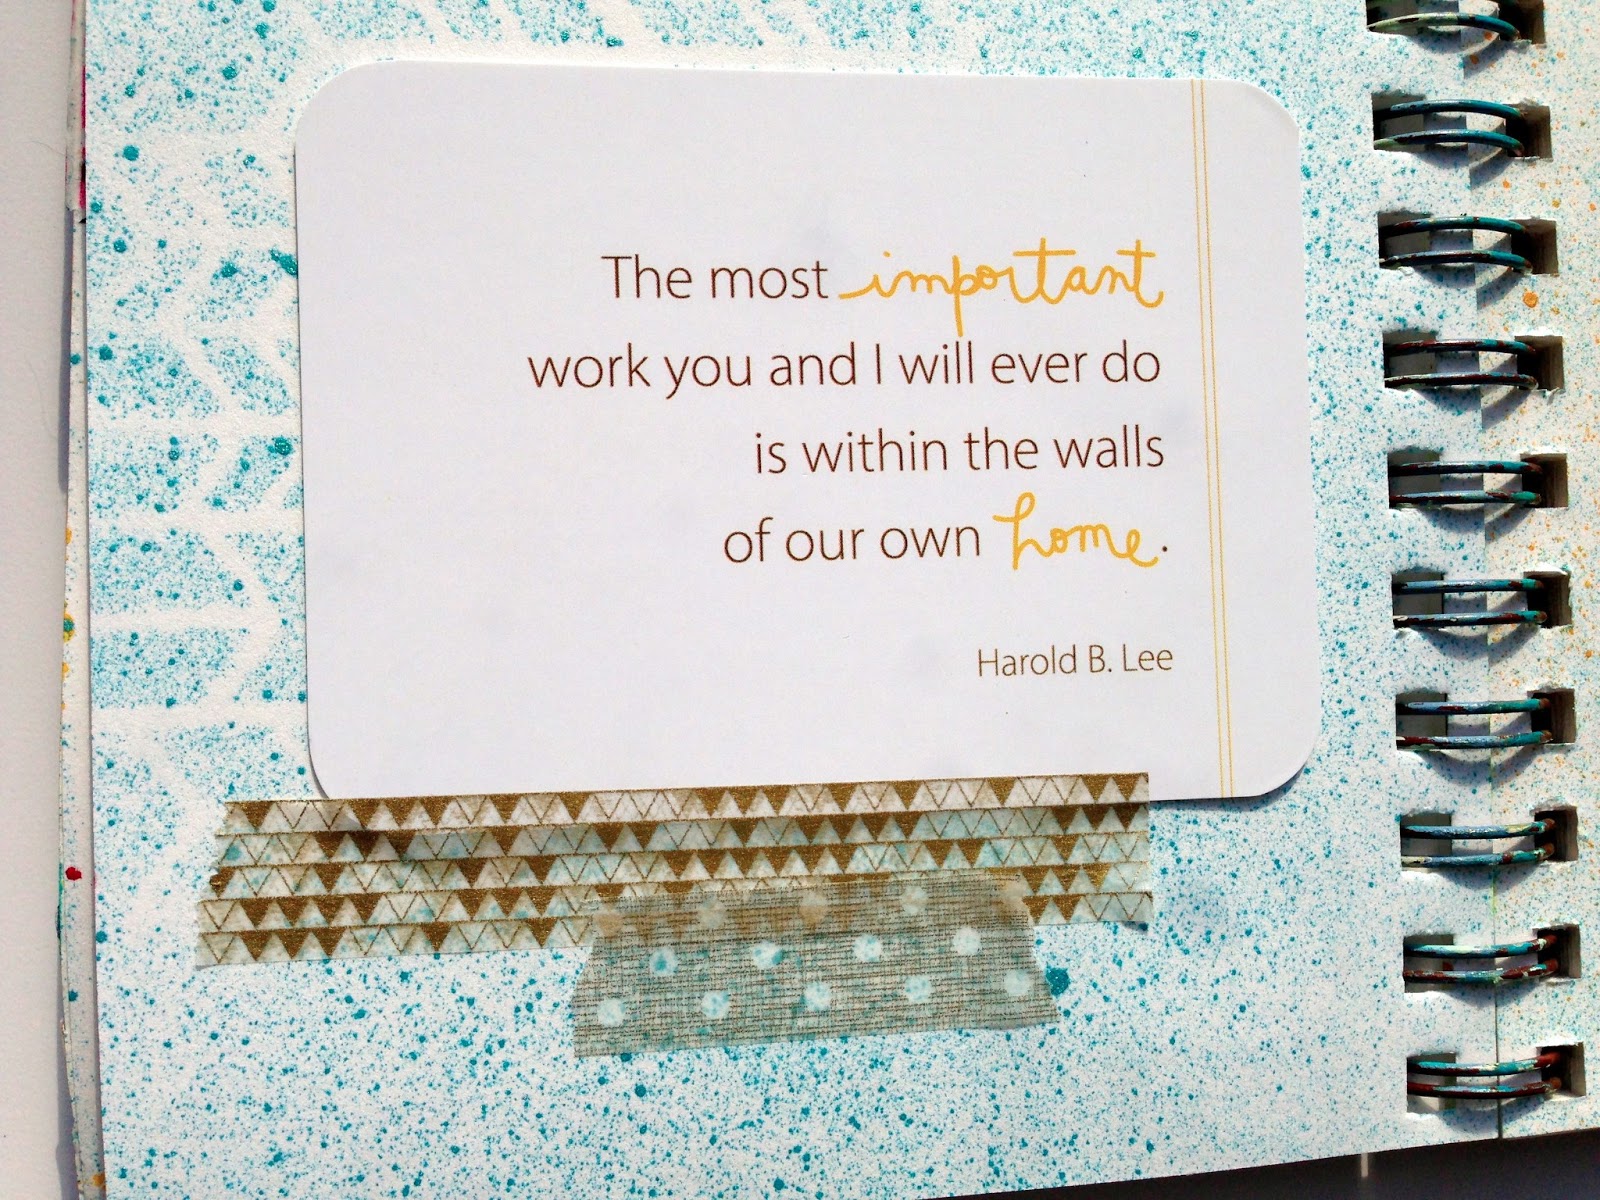 The most important
work you and I will ever do
is within the walls
of our own home.
Harold B. Lee